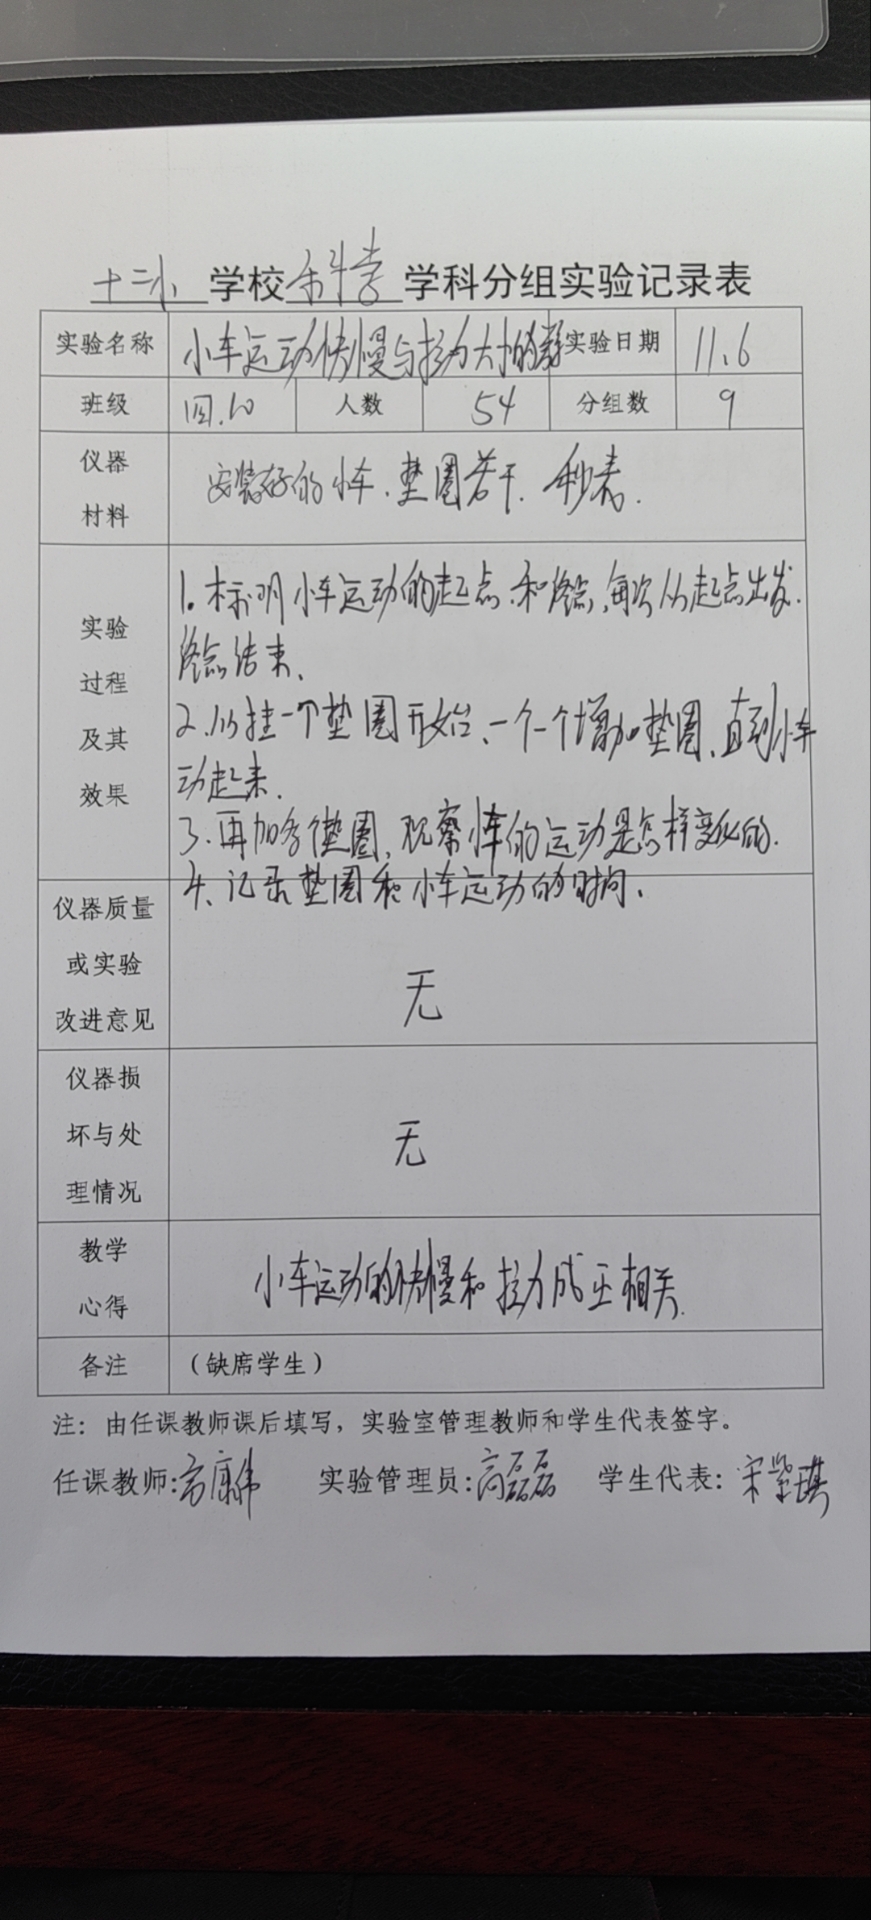 十三小 学校 科学 学科分组实验记录表
实验名称 小车运动快慢与拉力大小的 实验日期 11.6
班级 四.10 人数 54 分组数 9
仪器材料 安装好的小车、垫圈若干、秒表.
实验过程及其效果
1. 标明小车运动的起点和终点,每次从起点出发.
终点结束、
2. 从挂一个垫圈开始、一个一个增加垫圈、直到小车
动起来.
3. 再加多个垫圈,观察小车的运动是怎样变化的.
4、记录垫圈和小车运动的时间.
仪器质量或实验改进意见 无
仪器损坏与处理情况 无
教学心得 小车运动的快慢和拉力成正相关.
备注 (缺席学生)
注:由任课教师课后填写,实验室管理教师和学生代表签字。
任课教师:方康伟 实验管理员:高磊磊 学生代表:宋紫琪